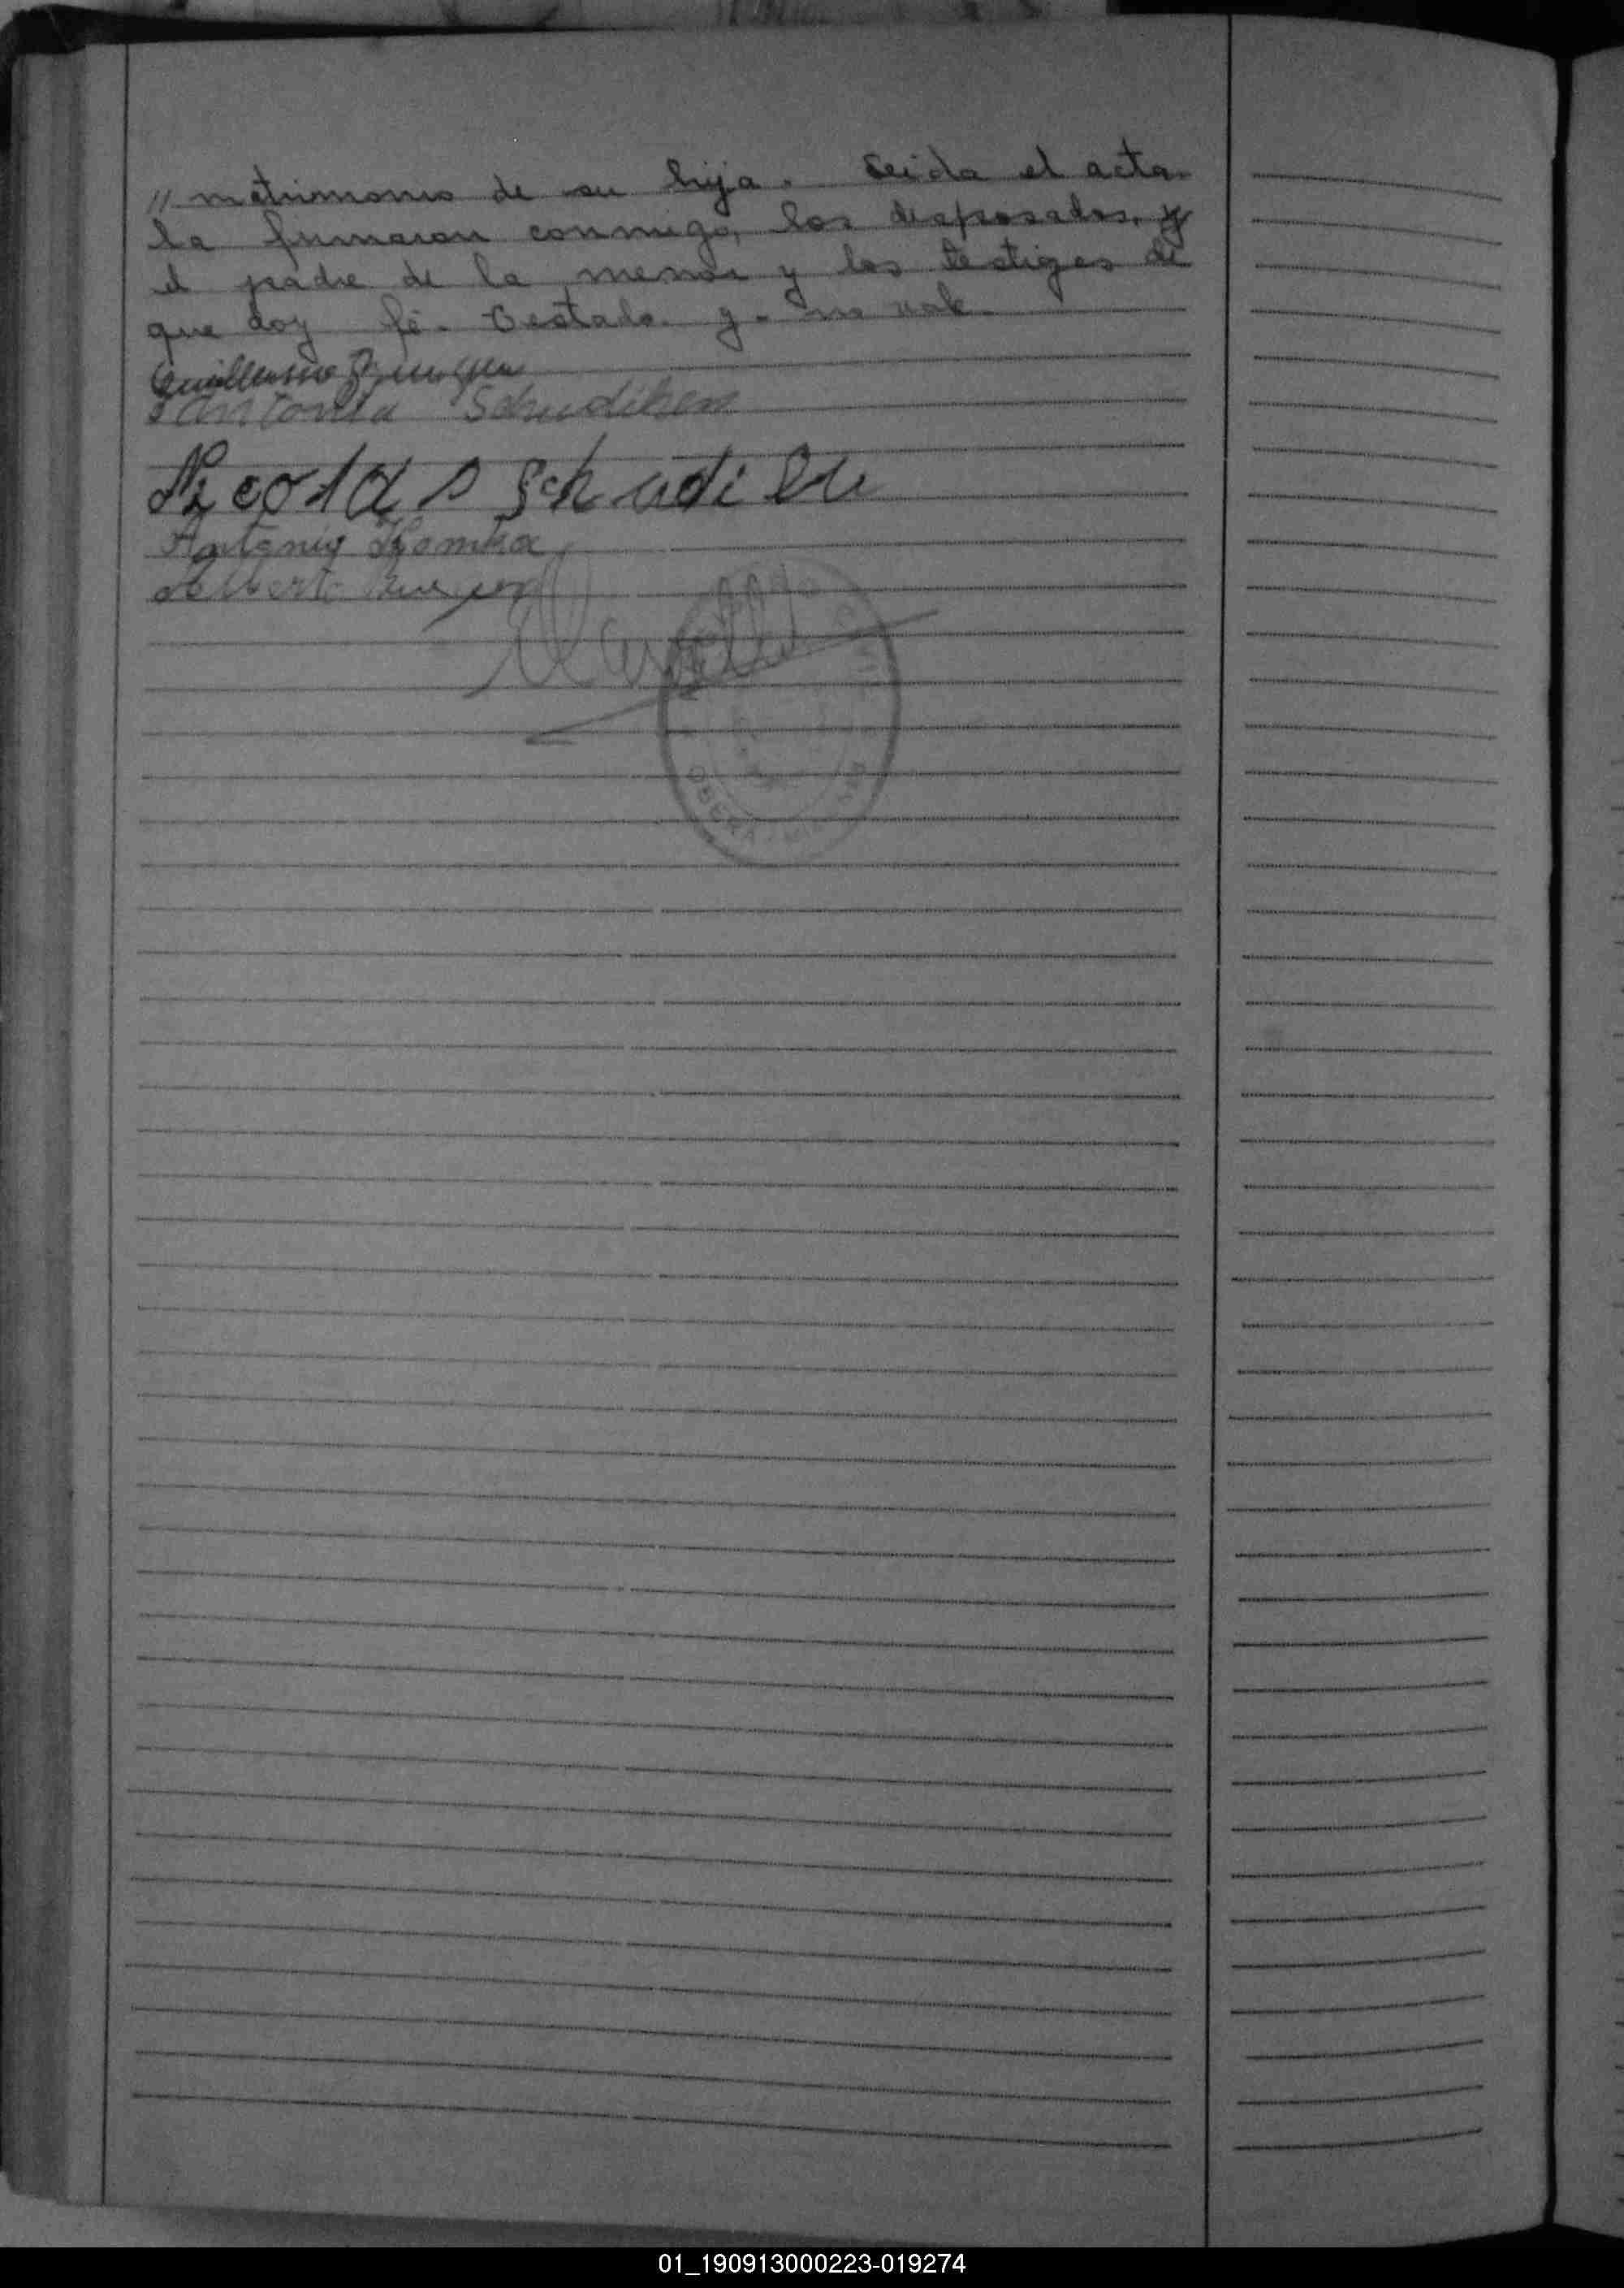 // matrimonio de su hija. Leida el acta.
la firmaron conmigo, los desposados, y
el padre de la menor y los testigos de
que doy fé. Testado. y. no vale.
Guillermo
Antonia Schudiken
Nicolas Schudiken
Antonio Homka
Alberto
OBERA - MISIONES
01_190913000223-019274